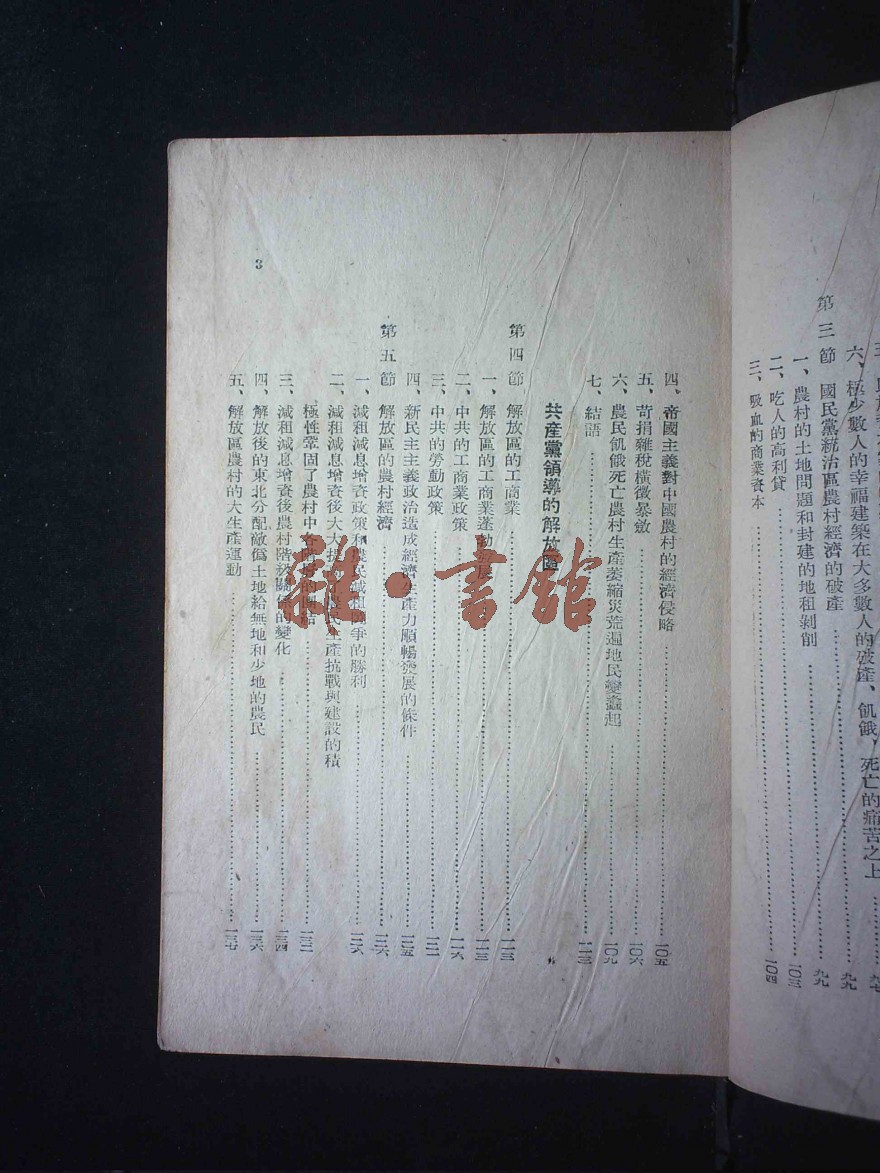 六、極少數人的幸福建築在大多數人的破產、飢餓、死亡的痛苦之上……九九
第三節 國民黨統治區農村經濟的破產……九九
一、農村的土地問題和封建的地租剝削……九九
二、吃人的高利貸……一〇三
三、吸血的商業資本……一〇四
四、帝國主義對中國農村的經濟侵略……一〇五
五、苛捐雜稅橫徵暴斂……一〇六
六、農民飢餓死亡農村生產萎縮災荒遍地民變蠭起……一〇九
七、結語……一一三
共產黨領導的解放區
第四節 解放區的工商業……一一三
一、解放區的工商業蓬勃發展……一一三
二、中共的工商業政策……一一六
三、中共的勞動政策……一二一
四、新民主主義政治造成經濟生產力順暢發展的條件……一二五
第五節 解放區的農村經濟……一二六
一、減租減息增資政策和農民減租鬥爭的勝利……一二六
二、減租減息增資後大大提高了農民生產抗戰與建設的積
極性鞏固了農村中各階層的團結……一三二
三、減租減息增資後農村階級關係的變化……一三四
四、解放後的東北分配敵偽土地給無地和少地的農民……一三六
五、解放區農村的大生產運動……一三七
3
雜·書館